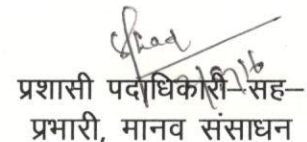 प्रशासी पदाधिकारी–सह–
प्रभारी, मानव संसाधन